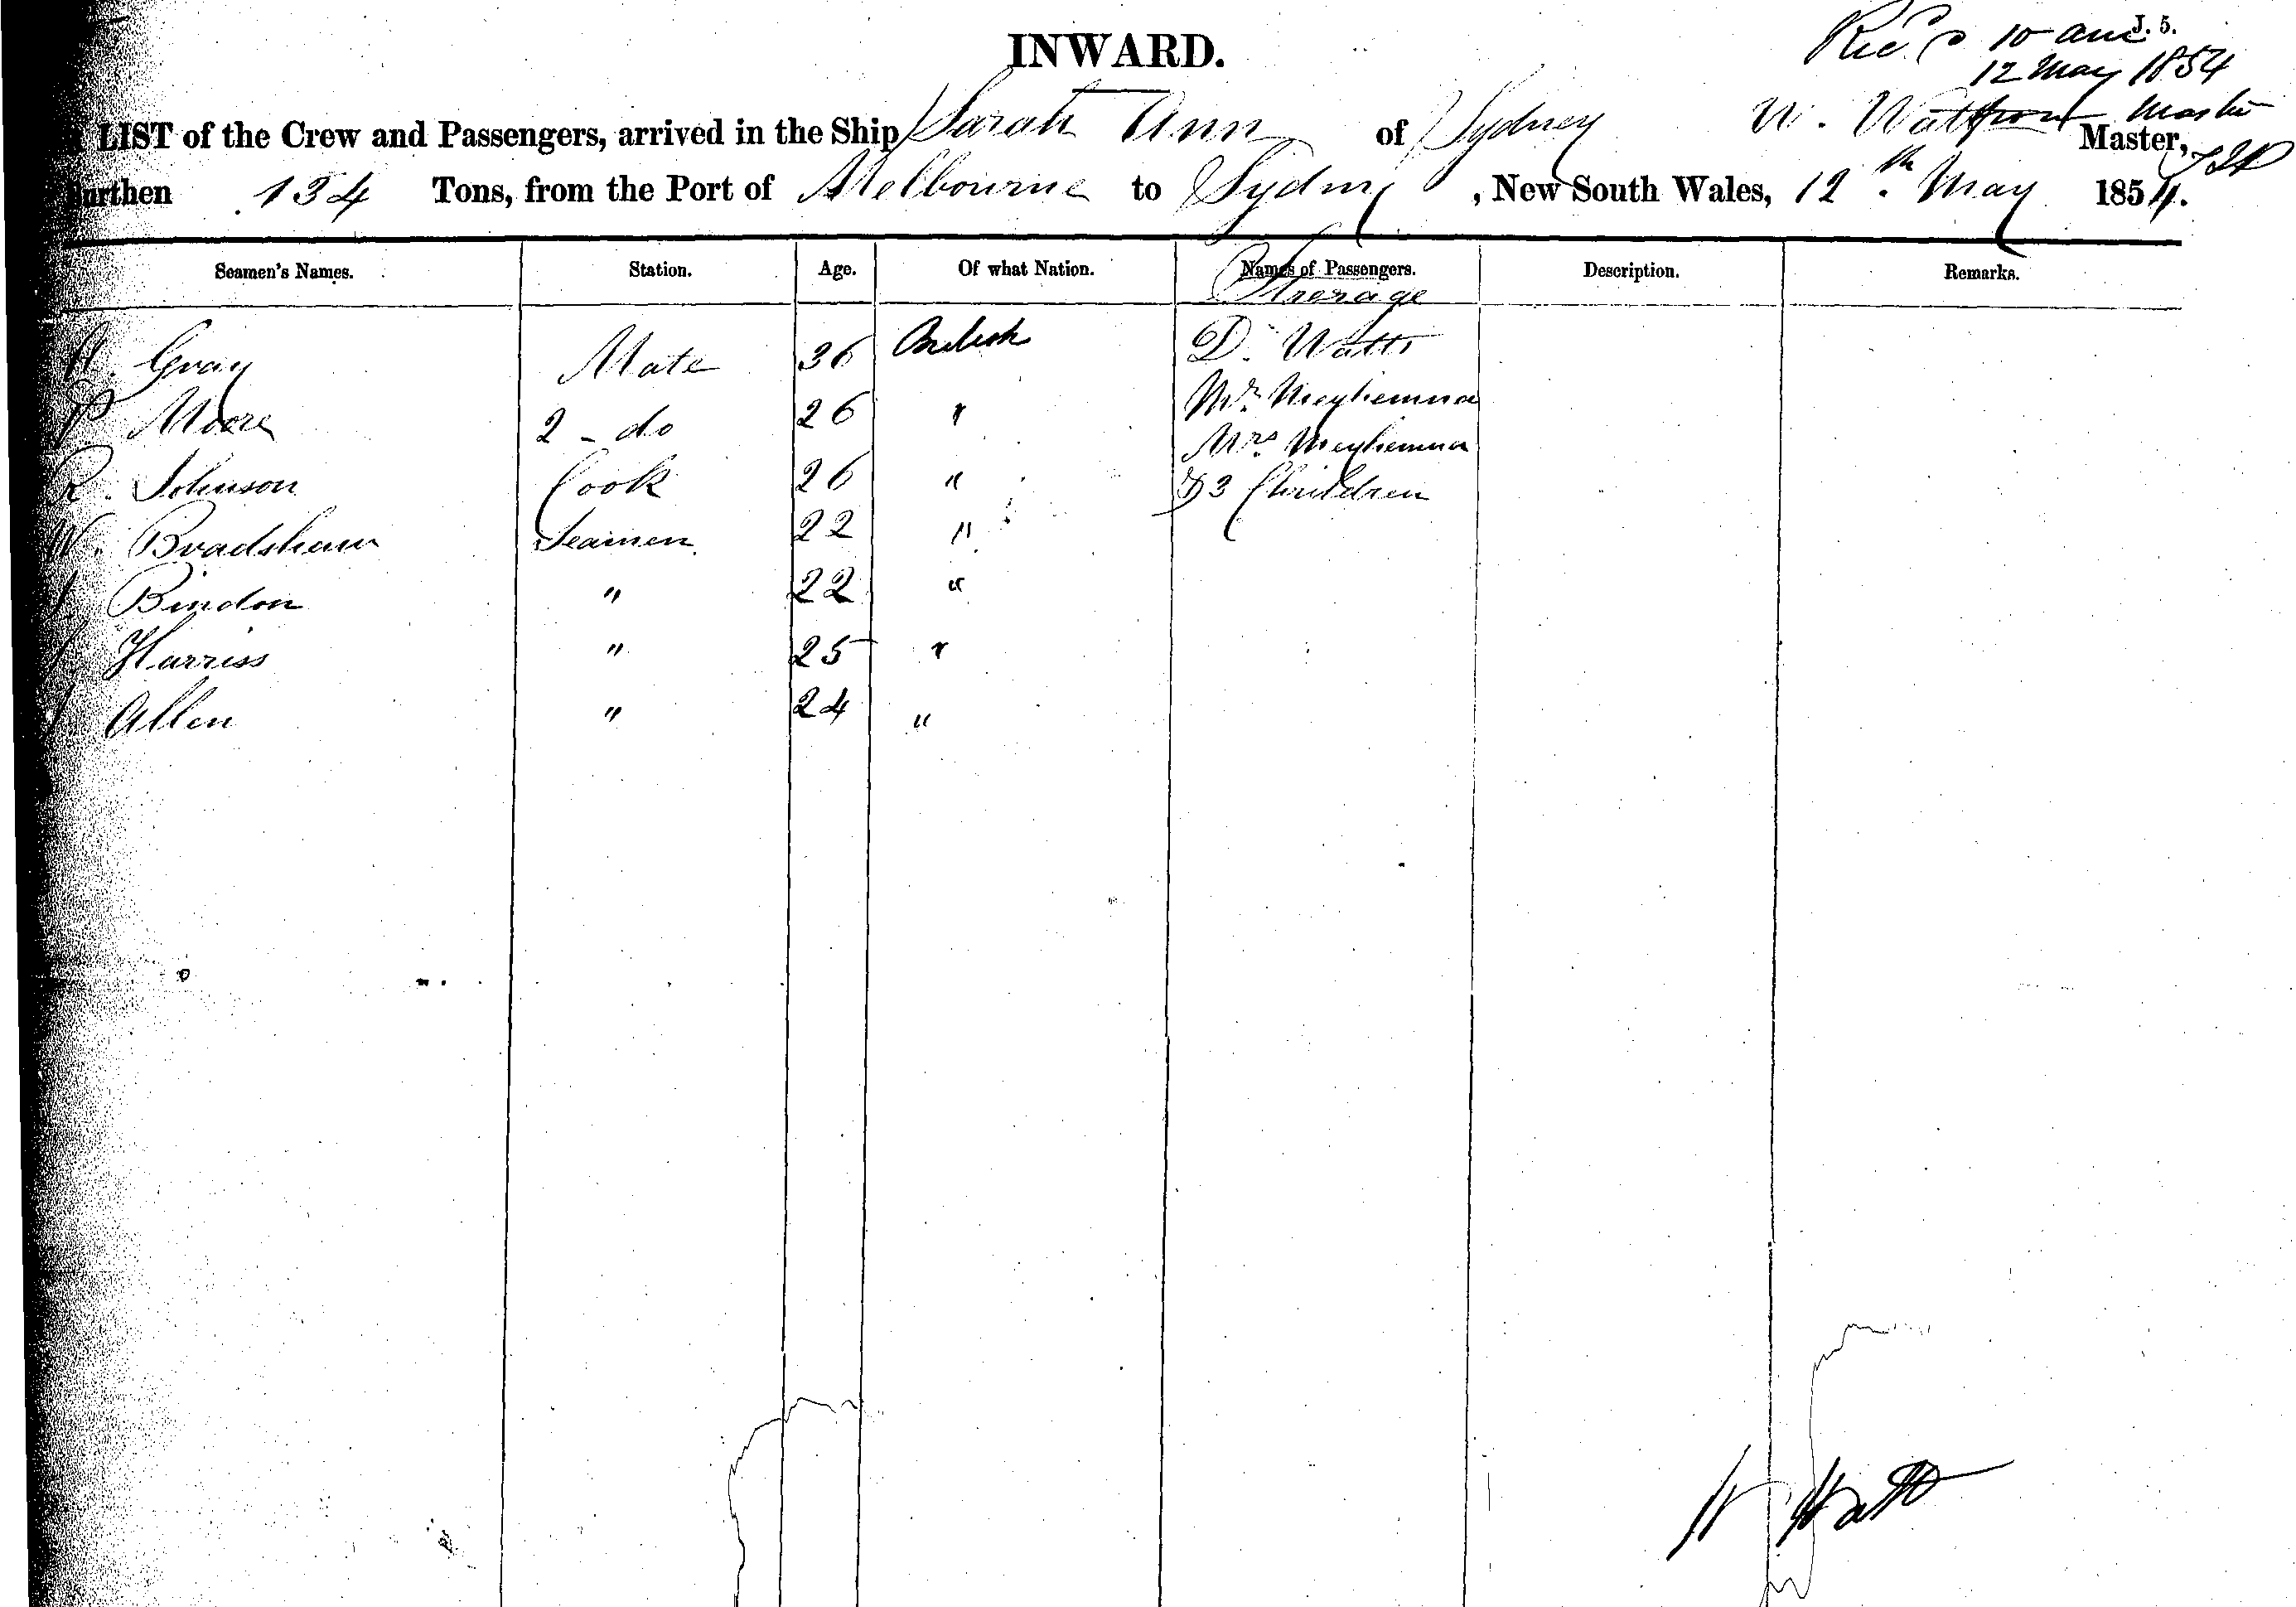 J. 5.
INWARD.
Recd 10 am
12 May 1854
LIST of the Crew and Passengers, arrived in the Ship Sarah Ann of Sydney W. Watt Master
Master,
Burthen 134 Tons, from the Port of Melbourne to Sydney, New South Wales, 12th May 1854.
Seamen's Names. Station. Age. Of what Nation. Names of Passengers. Description. Remarks.
Steerage
Gray Mate 36 British D. Watts
P Moore 2 - do 26 " Mr.
Mrs.
R. Johnson Cook 26 " & 3 Children
W. Bradshaw Seamen 22 "
Bindon " 22 "
Harriss " 25 "
Allen " 24 "
W Watt